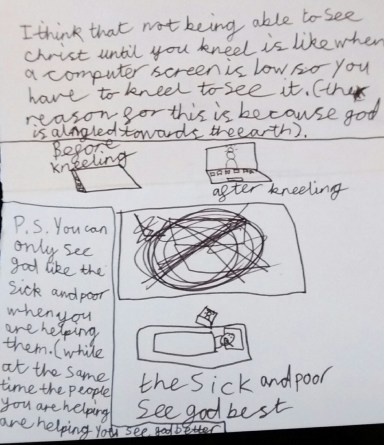 I think that not being able to see
christ until you kneel is like when
a computer screen is low so you
have to kneel to see it. (the
reason for this is because god
is alngled towards the earth).
Before
kneeling
after kneeling
P.S. You can
only see
god like the
sick and poor
when you
are helping
them. (while
at the same
time the people
you are helping
are helping you see god better
the sick and poor
see god best